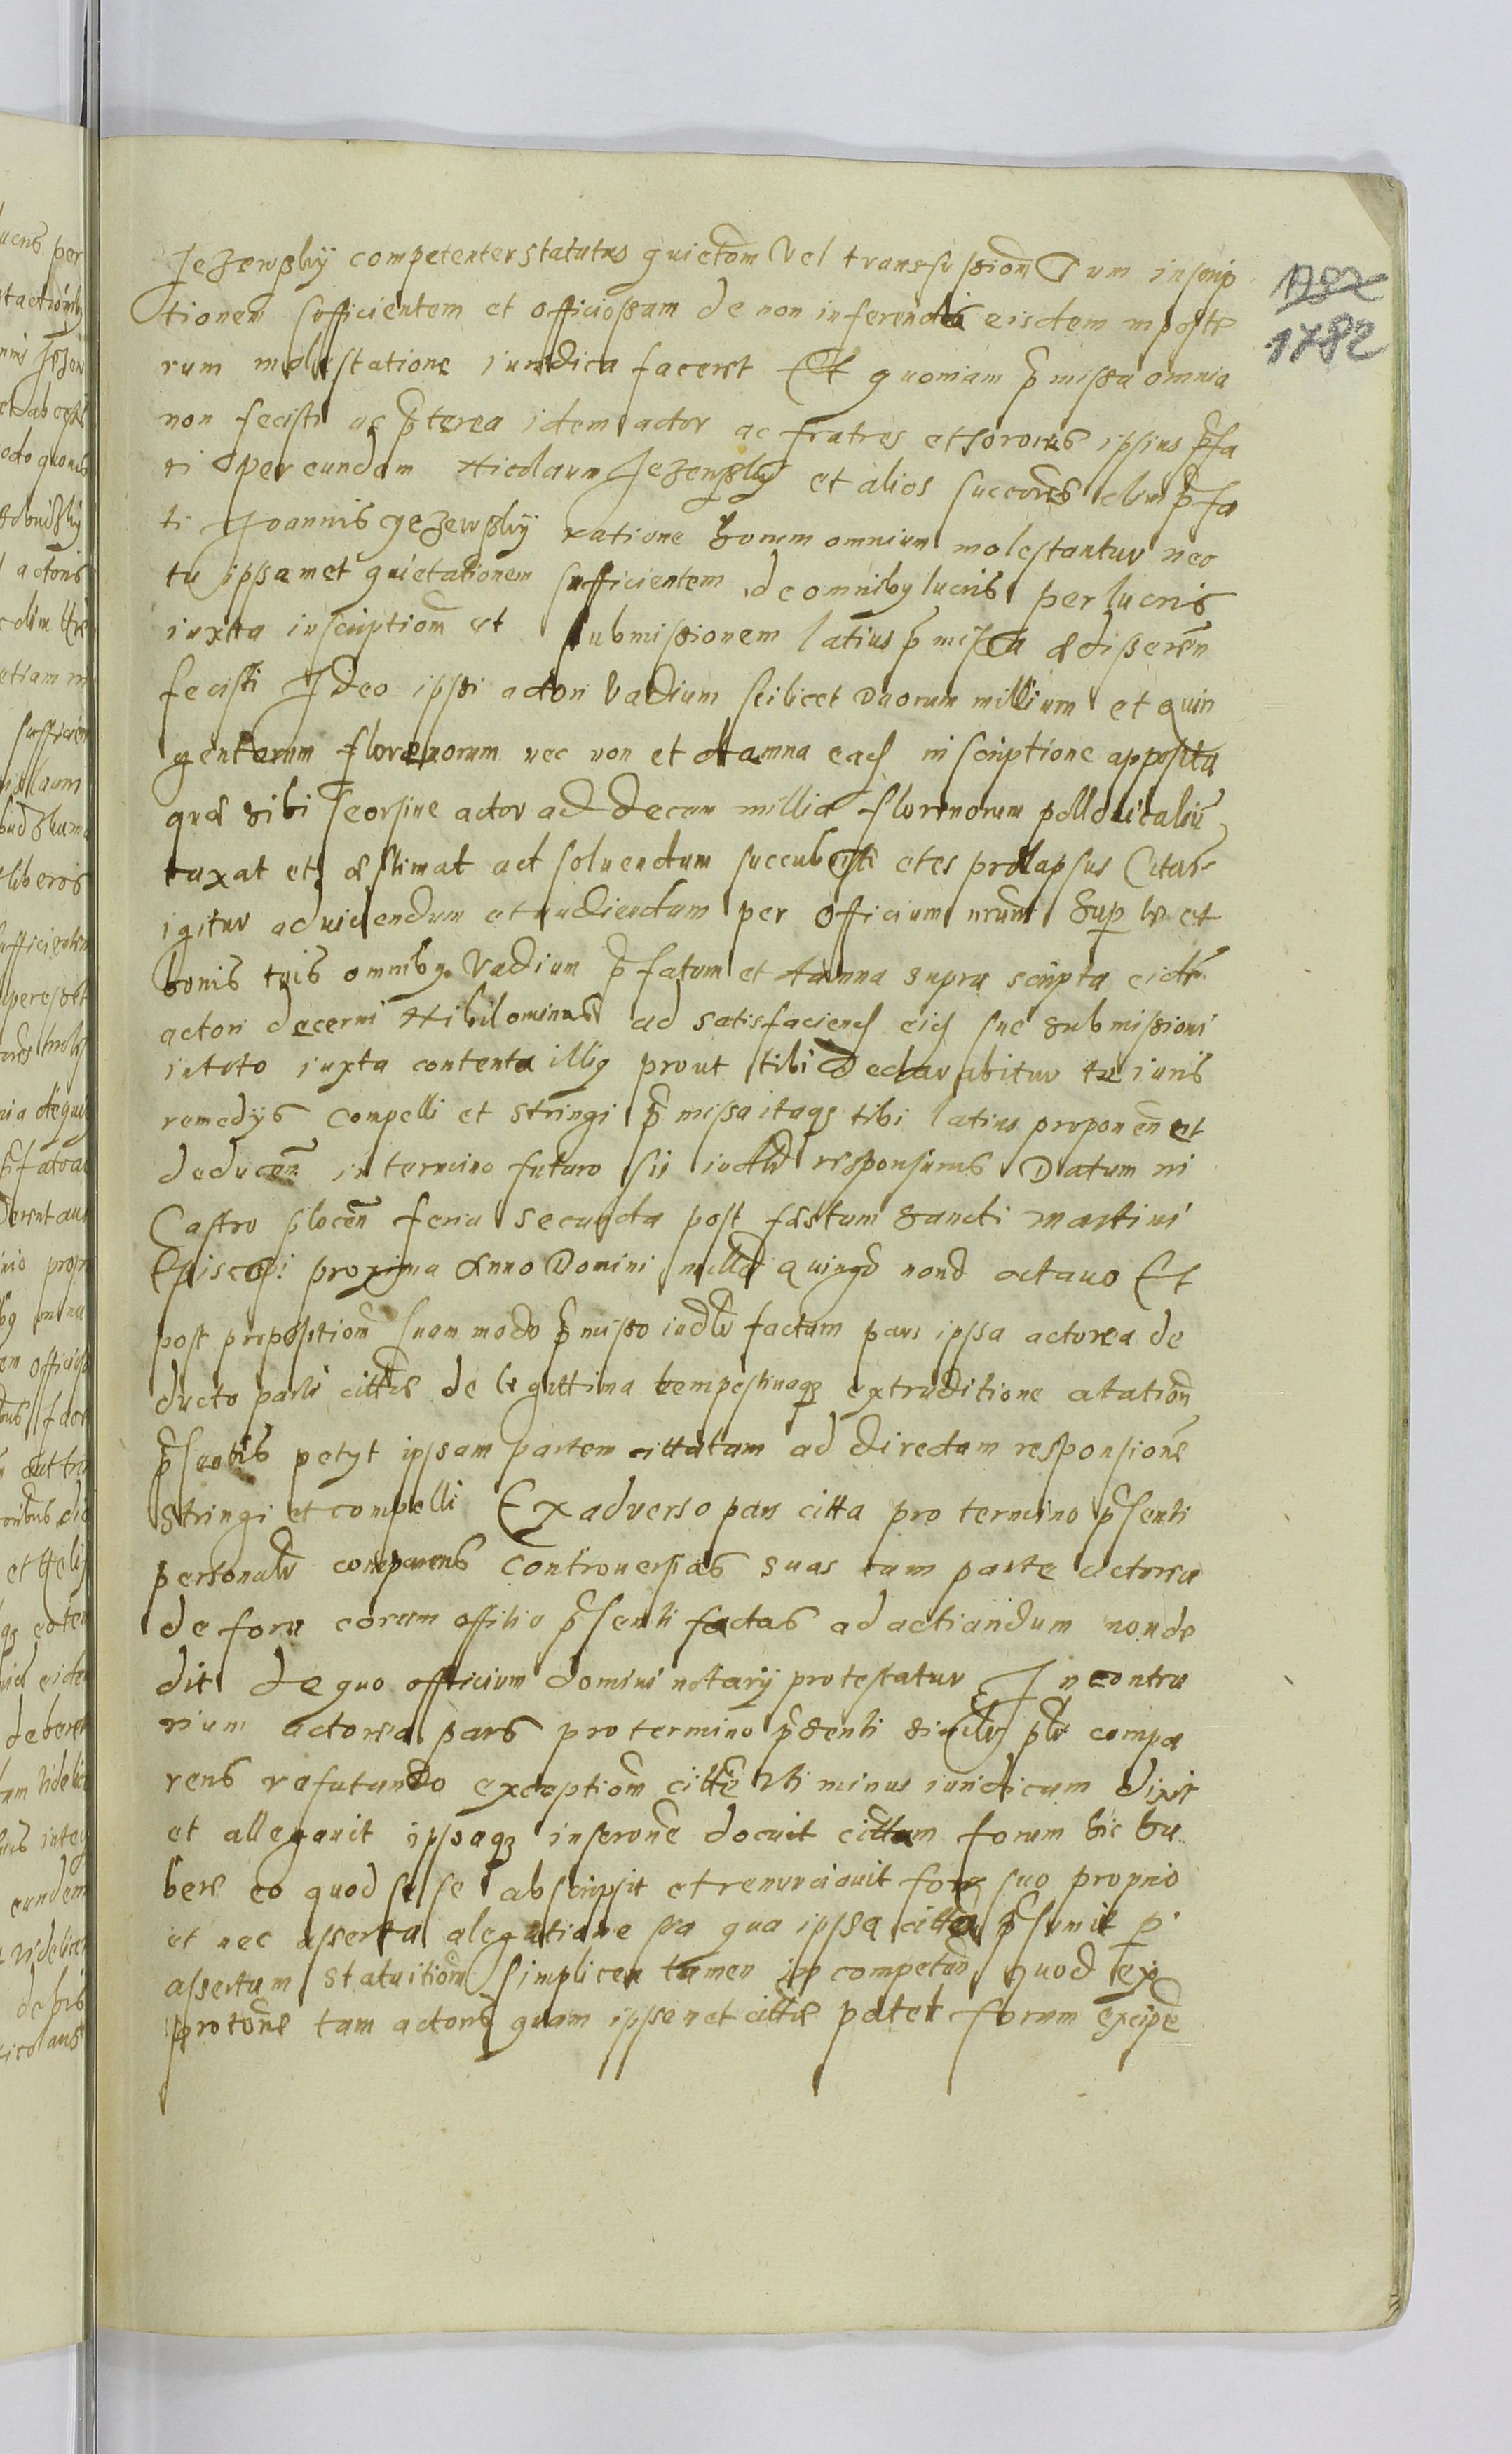 1782
1782
Jezewsky competenter statutus quietom vel transfusiom Tum inscrip
tionem sufficientem et officiosam de non inferenda eisdem in poste
rum molestatione iuridica faceret Et quoniam p̄missa omnia
non fecisti ac p̄terea idem actor ac fratres et sorores ipsius p̄fa
ti per eundem Nicolaum Jezewsky et alios succores olim p̄fa
ti Joannis Jezewsky ratione horum omnium molestantur nec
tu ipsamet quietationem sufficientem de omniby lucris per lucris
iuxta inscriptiom et submissionem latius p̄missa disseren̄
fecisti Ideo ipsi actori vadium scilicet duorum millium et quin
gentorum florenorum nec non et damna ead inscriptione apposita
quæ sibi seorsive actor ad decem millia florenorum pollonicaliū
taxat et æstimat ad soluendum succubuisti et es prolapsus Citar
igitur ad uidendum et audiendum per Officium nrum Sup te et
bonis tuis omniby vadium p̄fatum et damna supra scripta eidē
actori decerni Nihilominus ad satisfaciend eid sue submissioni
in toto iuxta contenta illiy prout tibi declarabitur te iuris
remedys compelli et stringi p̄missa itaq tibi latius proponen et
deducen̄ in termino futuro sis iudlr responsurus Datum in
Castro plocen̄ feria secunda post fæstum sancti Martini
Episcopi proxima Anno Domini millo quingo nono octauo Et
post propositiom suam modo p̄misso iudlr factam pars ipsa actorea de
ducto parti cittæ de legittima tempestiuaq extraditione citatiom
p̄sentis petyt ipsam partem cittatam ad directam responsionē
stringi et compelli Ex aduerso pars citta pro termino p̄senti
personalr comparens controuersias suas cum parte actorea
de foro coram offitio p̄senti factas ad actiandum non de
dit de quo officium domini notarij protestatur In contra
rium actorea pars pro termino p̄senti similr plr compa
rens rafutando exceptiom cittæ Uti minus iuridicam dixit
et allegauit ipsaq inserone docuit cittam forum hic ha
bere eo quod sese abscripsit et renunciauit foro suo proprio
et nec asserta alegatione sua qua ipsa citta p̄sumit p
assertam statuitiom simplicem tamen in competen quod ex
protone tam actoris quam ipsemet cittæ patet forum excipe